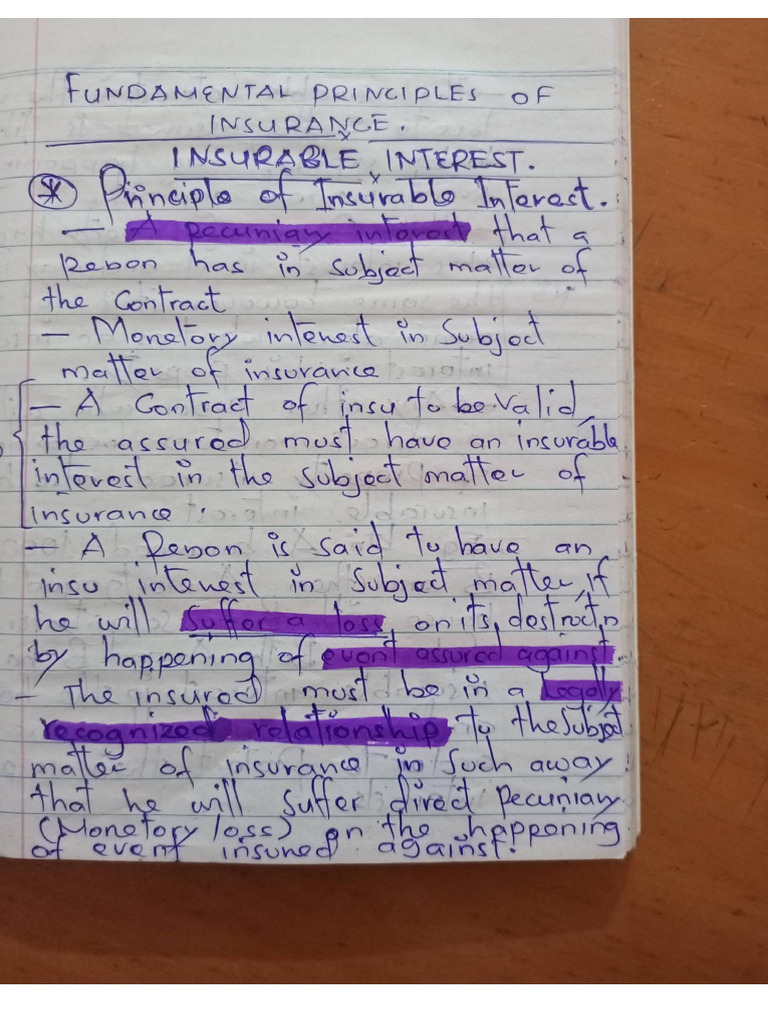 FUNDAMENTAL PRINCIPLES OF
INSURANCE.
INSURABLE INTEREST.
* Principle of Insurable Interest.
— A pecuniary interest that a
Person has in subject matter of
the Contract
— Monetory interest in Subject
matter of insurance
— A Contract of insu to be valid,
the assured must have an insurable
interest in the subject matter of
insurance.
— A Person is said to have an
insu interest in subject matter, if
he will suffer a loss on its destructn
by happening of event assured against.
- The insured must be in a Legally
recognized relationship to the subject
matter of insurance in such away
that he will suffer direct pecuniary
(Monetory loss) on the happening
of event insured against.